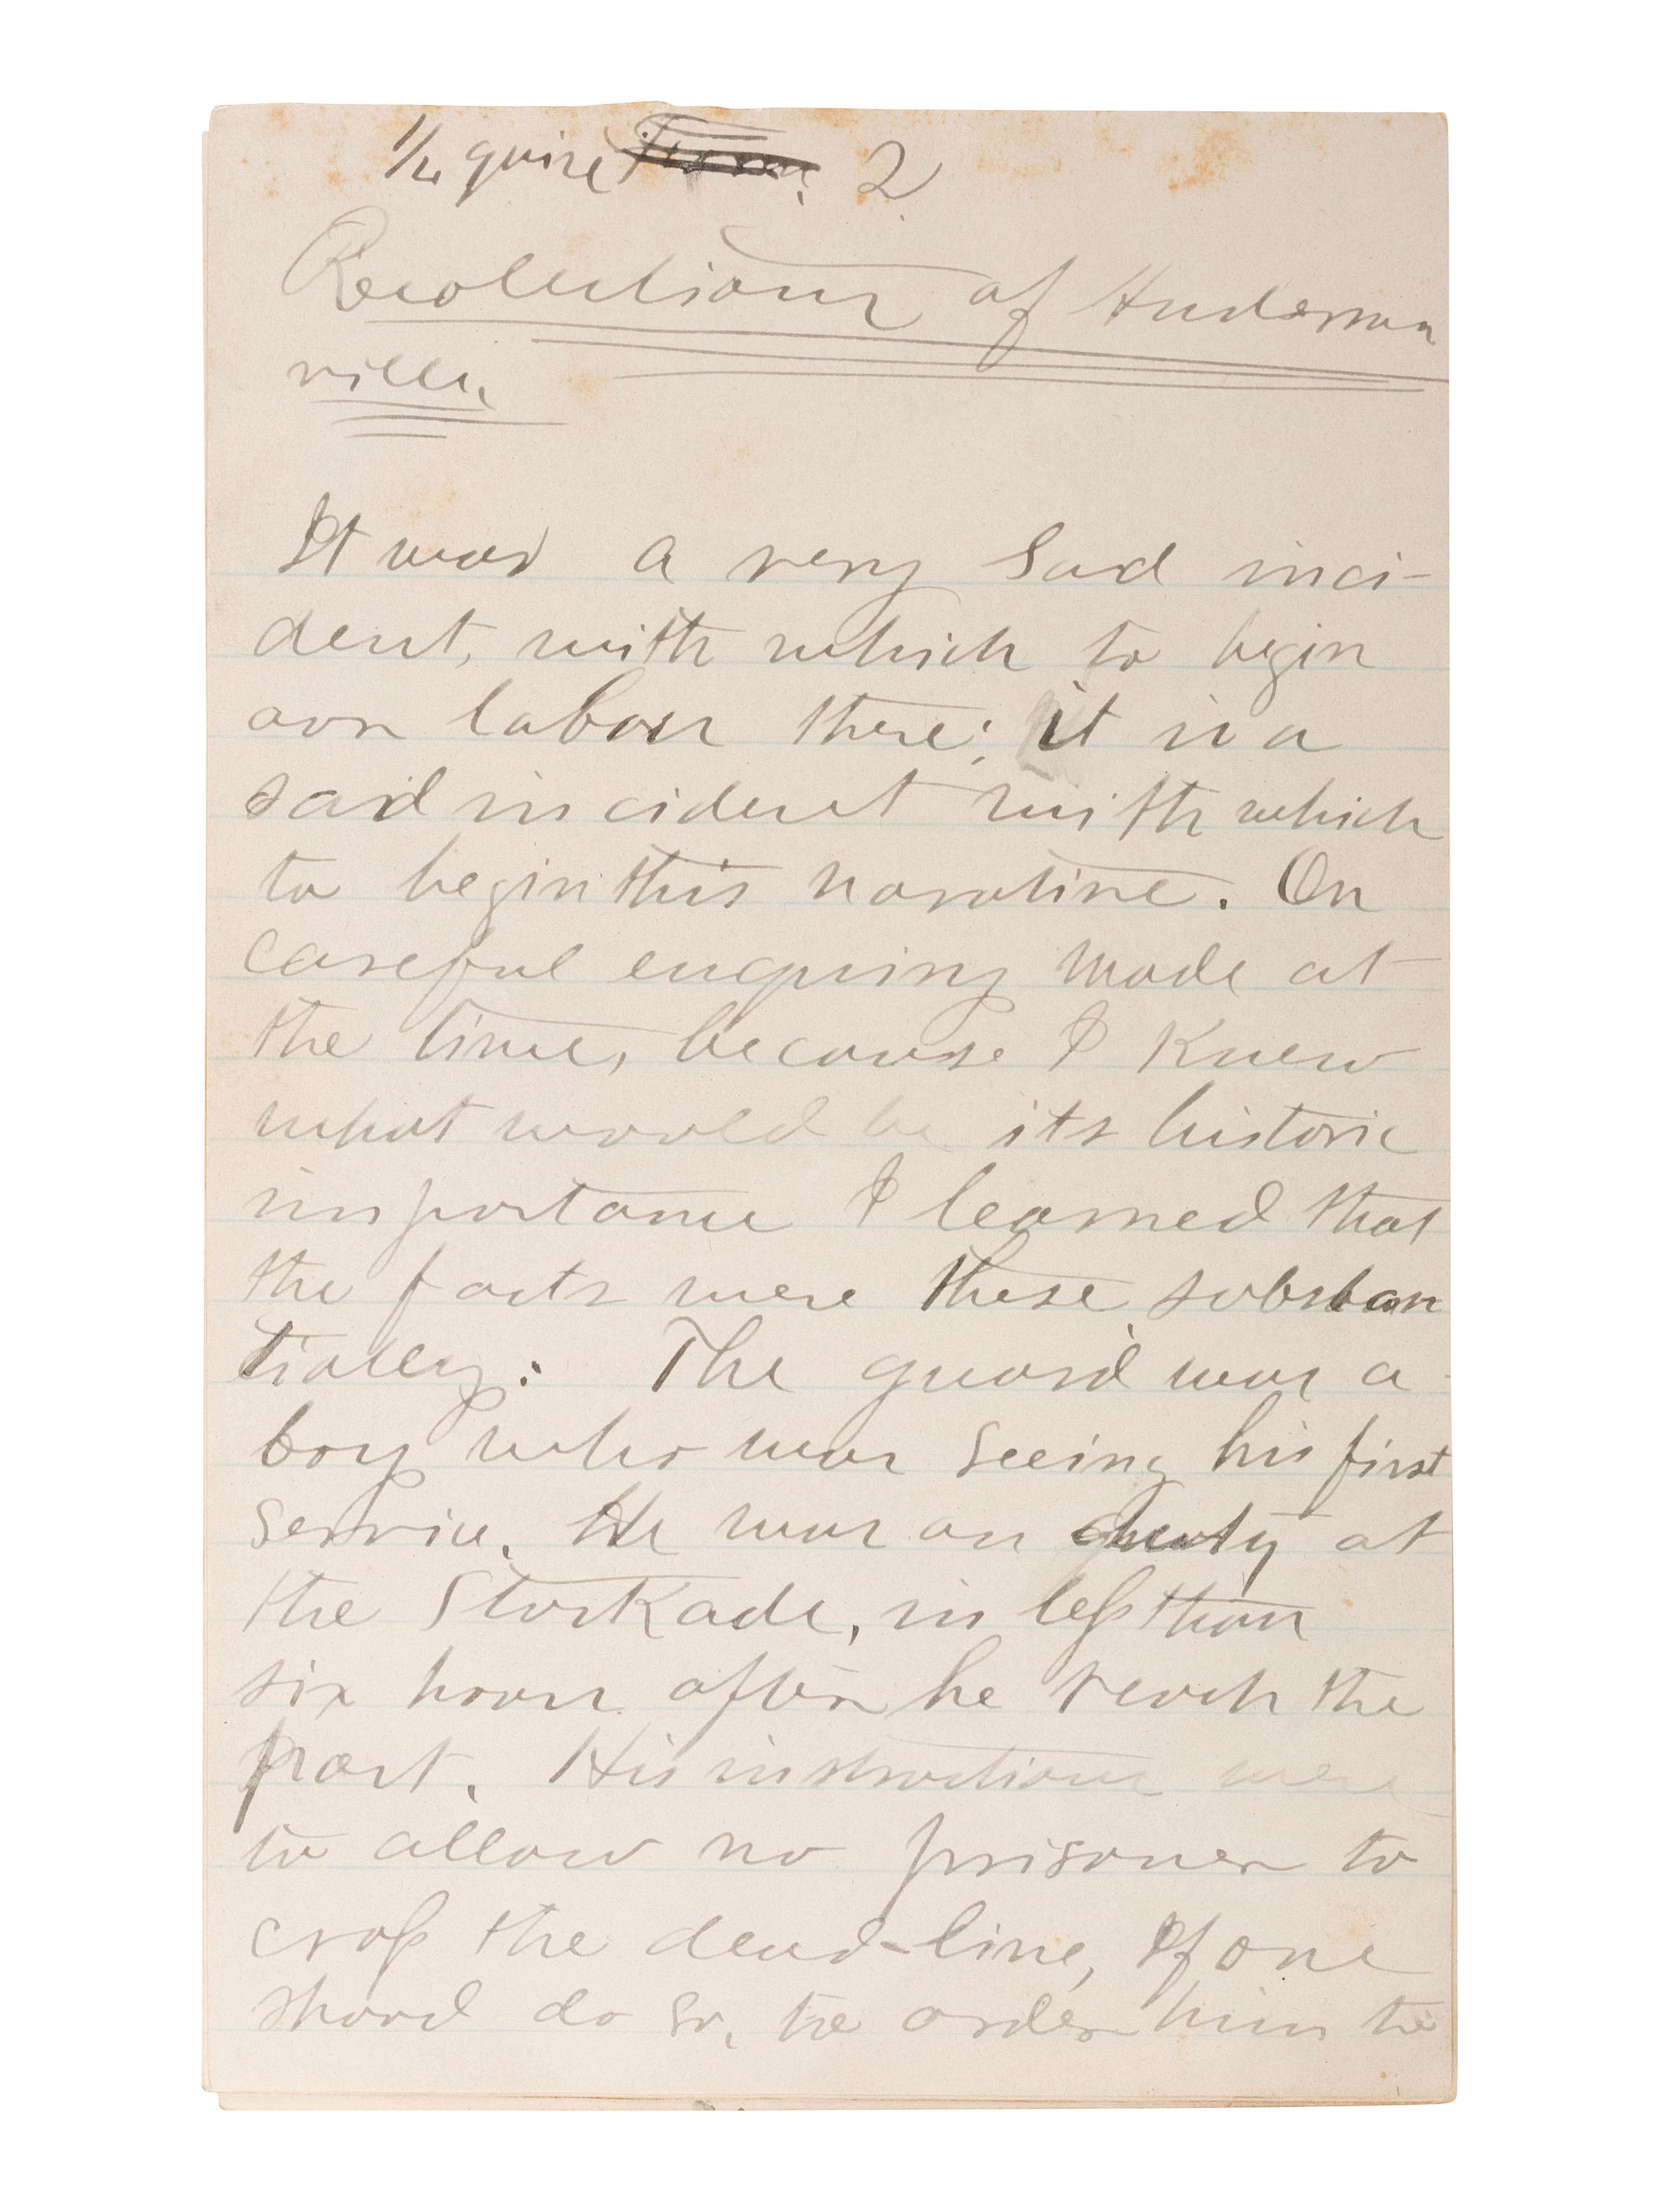 quire 2
Recollections of Anderson
ville.
It was a very sad inci-
dent, with which to begin
our labour there; it is a
sad incident with which
to begin this narative. On
careful enquiry made at
the time, because I knew
what would be its historic
importance I learned that
the facts were these substan
tially: The guard was a
boy who was seeing his first
service. He was on duty at
the Stockade, in less than
six hours after he reach the
post. His instructions were
to allow no prisoner to
cross the dead-line, If one
shoud do so, he order him to